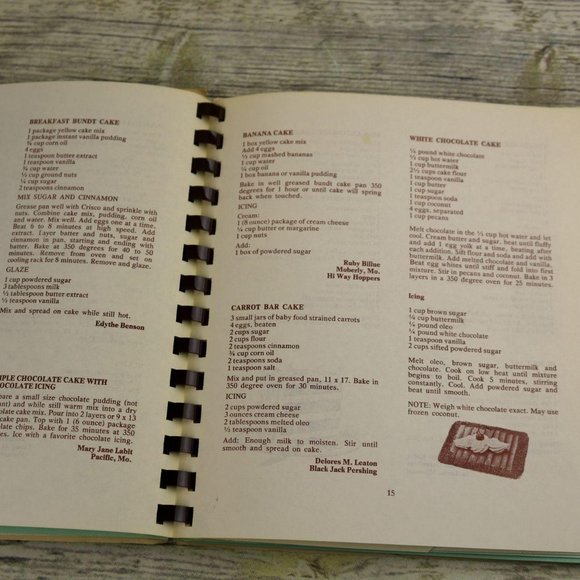 BREAKFAST BUNDT CAKE
1 package yellow cake mix
1 package instant vanilla pudding
¾ cup corn oil
4 eggs
1 teaspoon butter extract
1 teaspoon vanilla
¾ cup water
½ cup ground nuts
¼ cup sugar
2 teaspoons cinnamon
MIX SUGAR AND CINNAMON
Grease pan well with Crisco and sprinkle with
nuts. Combine cake mix, pudding, corn oil
and water. Mix well. Add eggs one at a time.
Beat 6 to 8 minutes at high speed. Add
extract. Layer batter and nuts, sugar and
cinnamon in pan, starting and ending with
batter. Bake at 350 degrees for 40 to 50
minutes. Remove from oven and set on
cooling rack for 8 minutes. Remove and glaze.
GLAZE
1 cup powdered sugar
3 tablespoons milk
tablespoon butter extract
teaspoon vanilla
Mix and spread on cake while still hot.
Edythe Benson
PLE CHOCOLATE CAKE WITH
OCOLATE ICING
are a small size chocolate pudding (not
ant) and while still warm mix into a dry
olate cake mix. Pour into 2 layers or 9 x 13
cake pan. Top with 1 (6 ounce) package
olate chips. Bake for 35 minutes at 350
es. Ice with a favorite chocolate icing.
Mary Jane Labit
Pacific, Mo.
BANANA CAKE
1 box yellow cake mix
Add 4 eggs
½ cup mashed bananas
1 cup water
¼ cup oil
1 box banana or vanilla pudding
Bake in well greased bundt cake pan 350
degrees for 1 hour or until cake will spring
back when touched.
ICING
Cream:
1 (8 ounce) package of cream cheese
¼ cup butter or margarine
1 cup nuts
Add:
1 box of powdered sugar
Ruby Billue
Moberly, Mo.
Hi Way Hoppers
CARROT BAR CAKE
3 small jars of baby food strained carrots
4 eggs, beaten
2 cups sugar
2 cups flour
2 teaspoons cinnamon
¾ cup corn oil
2 teaspoons soda
1 teaspoon salt
Mix and put in greased pan, 11 x 17. Bake in
350 degree oven for 30 minutes.
ICING
2 cups powdered sugar
3 ounces cream cheese
2 tablespoons melted oleo
½ teaspoon vanilla
Add: Enough milk to moisten. Stir until
smooth and spread on cake.
Delores M. Leaton
Black Jack Pershing
WHITE CHOCOLATE CAKE
pound white chocolate
½ cup hot water
1 cup buttermilk
2½ cups cake flour
1 teaspoon vanilla
1 cup butter
1 cup sugar
1 teaspoon soda
1 cup coconut
4 eggs, separated
1 cup pecans
Melt chocolate in the ½ cup hot water and let
cool. Cream butter and sugar, beat until fluffy
and add 1 egg yolk at a time, beating after
each addition. Sift flour and soda and add with
buttermilk. Add melted chocolate and vanilla.
Beat egg whites until stiff and fold into first
mixture. Stir in pecans and coconut. Bake in 3
layers in a 350 degree oven for 25 minutes.
Icing
1 cup brown sugar
cup buttermilk
pound oleo
pound white chocolate
1 teaspoon vanilla
2 cups sifted powdered sugar
Melt oleo, brown sugar, buttermilk and
chocolate. Cook on low heat until mixture
begins to boil. Cook 5 minutes, stirring
constantly. Cool. Add powdered sugar and
beat until smooth.
NOTE: Weigh white chocolate exact. May use
frozen coconut.
15